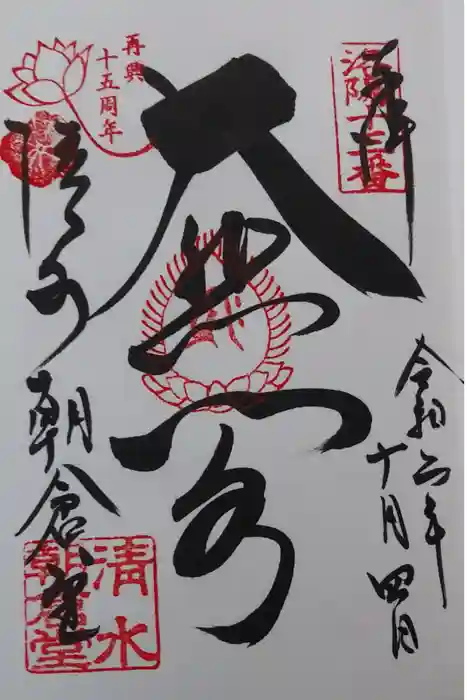 再興
十五周年
洛陽十三番
奉拝
大悲閣
清水
朝倉堂
令和年
十月四日
清水
朝倉堂